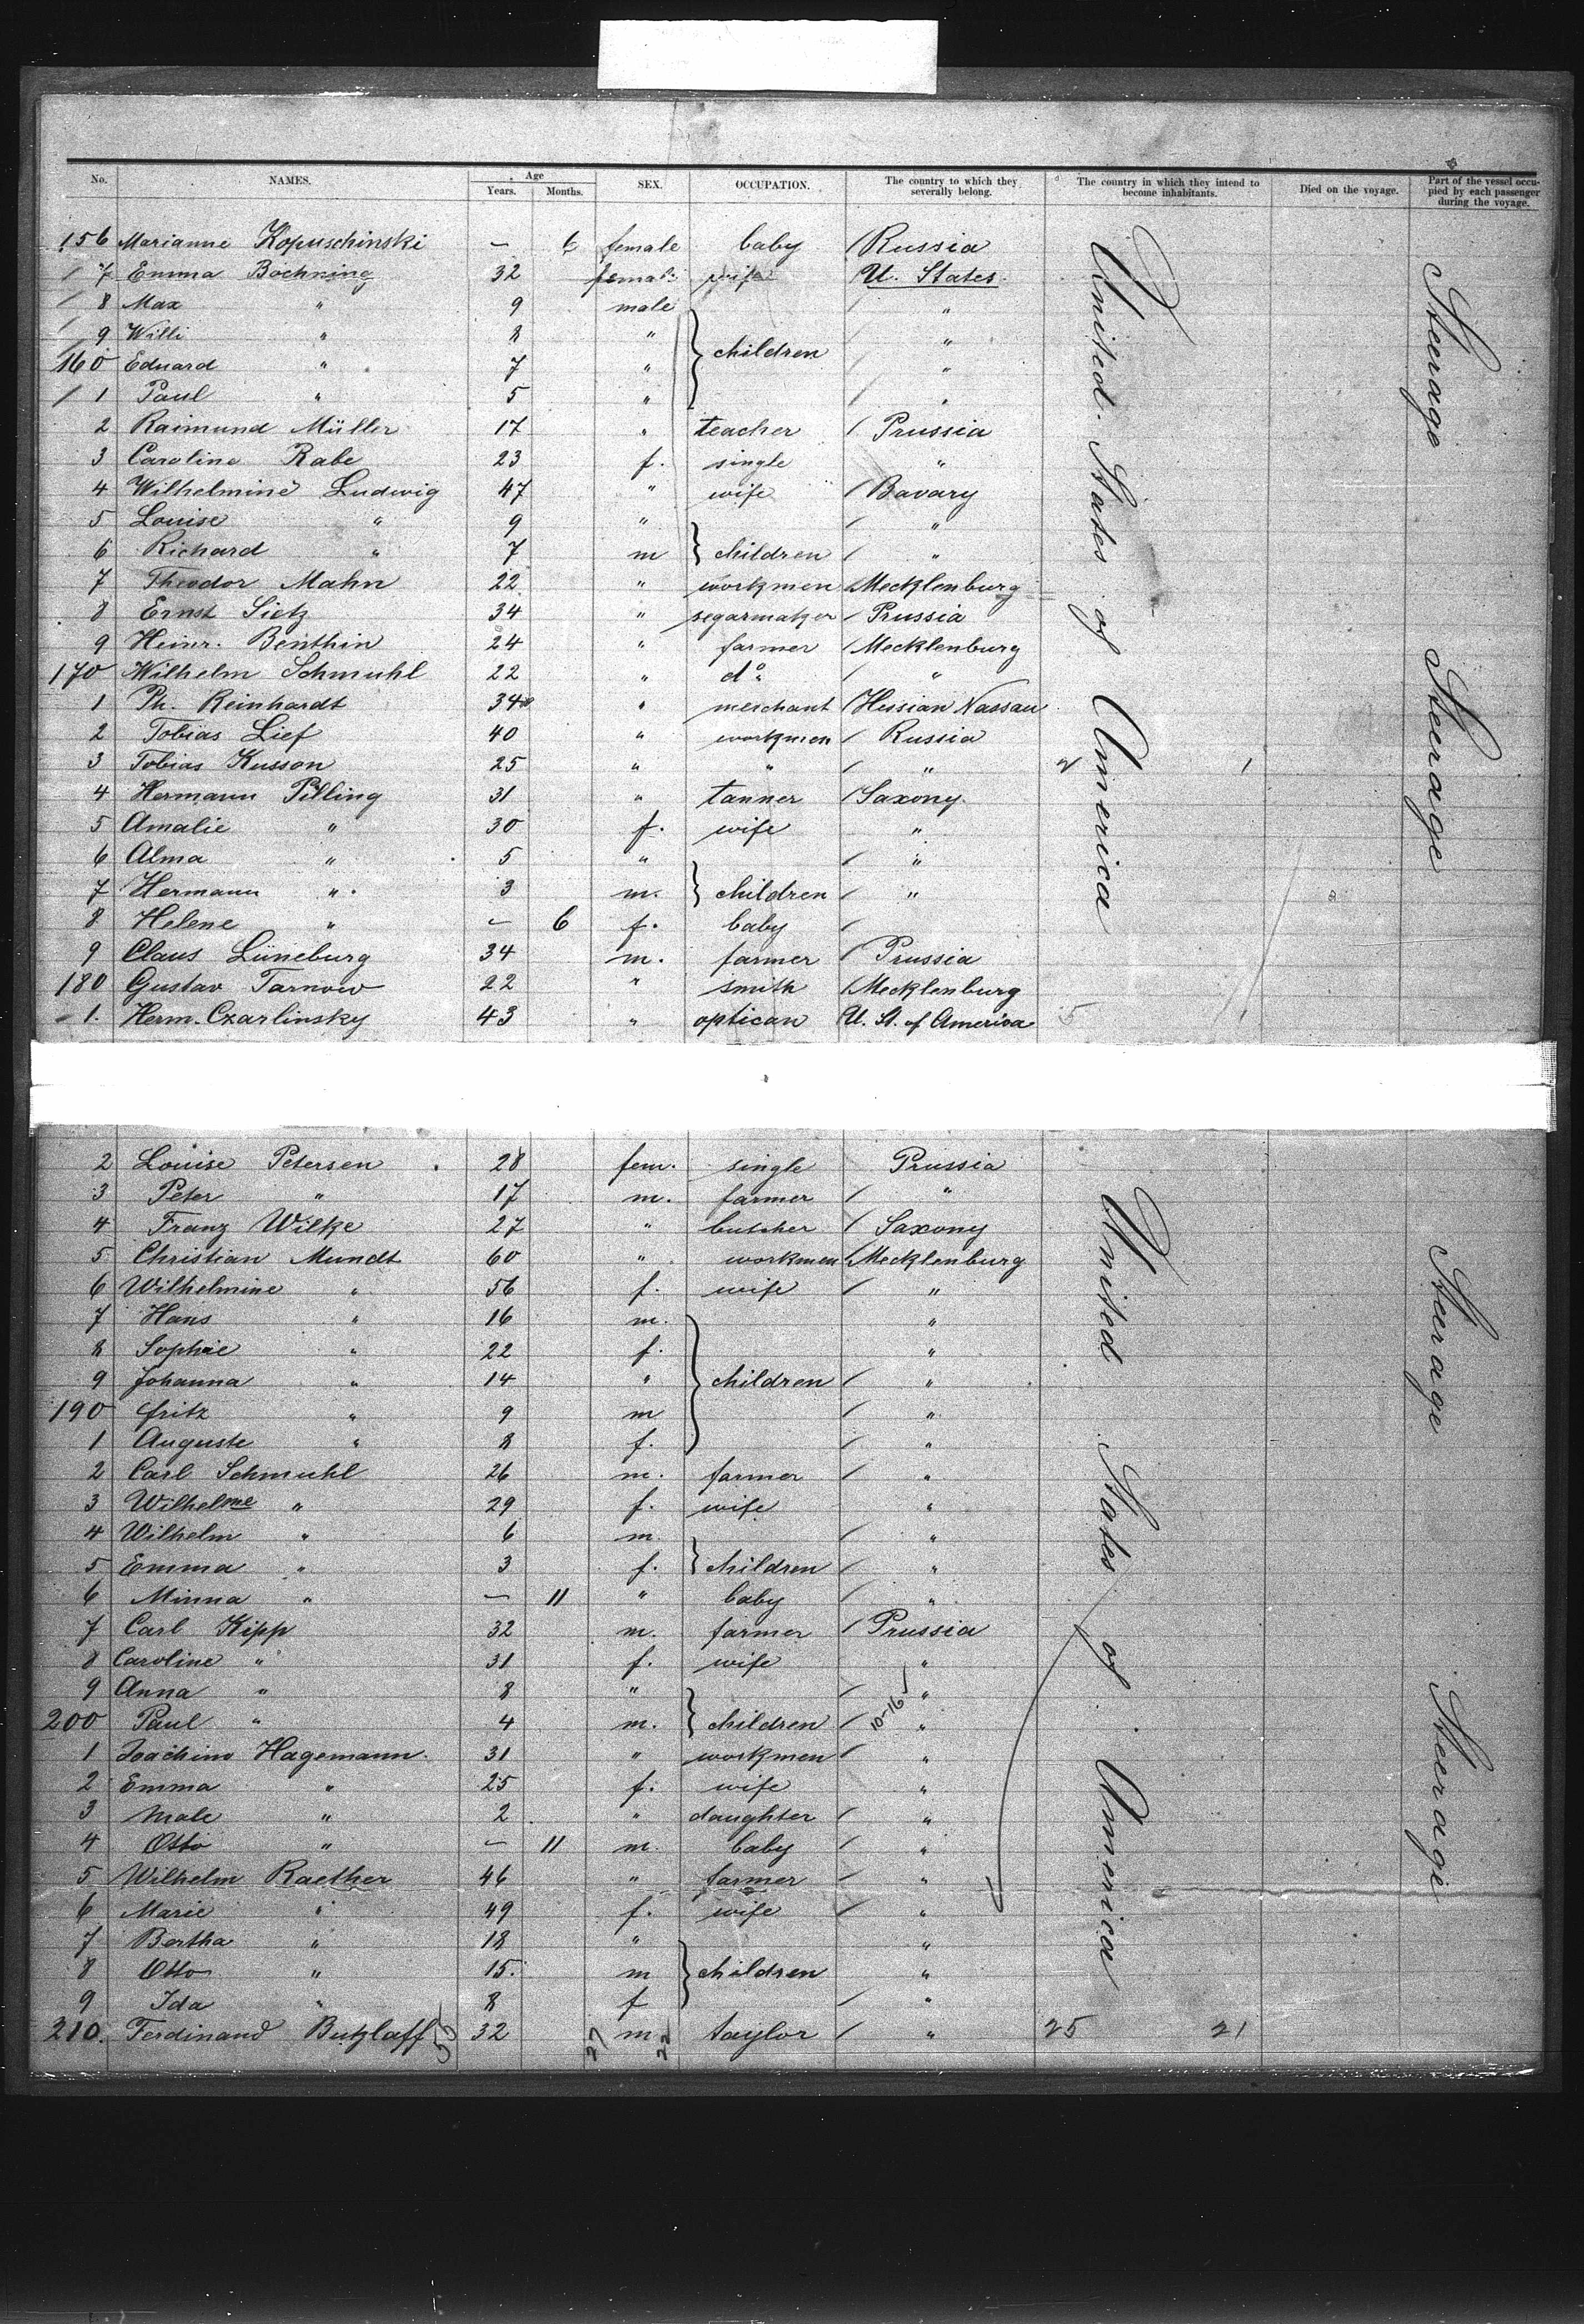 No. NAMES. Age Years. Months. SEX. OCCUPATION. The country to which they severally belong. The country in which they intend to become inhabitants. Died on the voyage. Part of the vessel occupied by each passenger during the voyage.
156 Marianne Kopuschinski – 6 female baby Russia
7 Emma Bochning 32 female wife U. States
8 Max " 9 male "
9 Willi " 8 " "
160 Eduard " 7 " children "
1 Paul " 5 " "
2 Raimund Müller 17 " teacher Prussia
3 Caroline Rabe 23 f. single "
4 Wilhelmine Ludwig 47 " wife Bavary
5 Louise " 9 " "
6 Richard " 7 m children "
7 Theodor Mahn 22 " workmen Mecklenburg
8 Ernst Sietz 34 " segarmaker Prussia
9 Heinr. Benthin 24 " farmer Mecklenburg
170 Wilhelm Schmuhl 22 " do "
1 Ph. Reinhardt 34 " merchant Hessian Nassau
2 Tobias Lief 40 " workmen Russia
3 Tobias Kusson 25 " " " 2 1
4 Hermann Pilling 31 " tanner Saxony.
5 Amalie " 30 f. wife "
6 Alma " 5 " "
7 Hermann " 3 m. children "
8 Helene " – 6 f. baby
9 Claus Lüneburg 34 m. farmer Prussia
180 Gustav Tarnow 22 " smith Mecklenburg
1. Herm. Czarlinsky 43 " optican U. St. of America 5
United States of America
Steerage
Steerage
2 Louise Petersen 28 fem. single Prussia
3 Peter " 17 m. farmer "
4 Franz Wilke 27 " butcher Saxony
5 Christian Mundt 60 " workmen Mecklenburg
6 Wilhelmine " 56 f. wife "
7 Hans " 16 m. "
8 Sophie " 22 f. "
9 Johanna " 14 " children "
190 Fritz " 9 m "
1 Auguste " 8 f. "
2 Carl Schmuhl 26 m. farmer "
3 Wilhelme " 29 f. wife "
4 Wilhelm " 6 m. "
5 Emma " 3 f. children "
6 Minna " – 11 " baby "
7 Carl Kipp 32 m. farmer Prussia
8 Caroline " 31 f. wife "
9 Anna " 8 " "
200 Paul " 4 m. children 10-16 "
1 Joachim Hagemann. 31 " workmen "
2 Emma " 25 f. wife "
3 Male " 2 " daughter "
4 Otto " – 11 m. baby "
5 Wilhelm Raether 46 " farmer "
6 Marie " 49 f. wife "
7 Bertha " 18 " "
8 Otto " 15. m children "
9 Ida " 8 f "
210. Ferdinand Butzlaff 55 32 27 m. 22 taylor " 25 21
United States of America
Steerage
Steerage